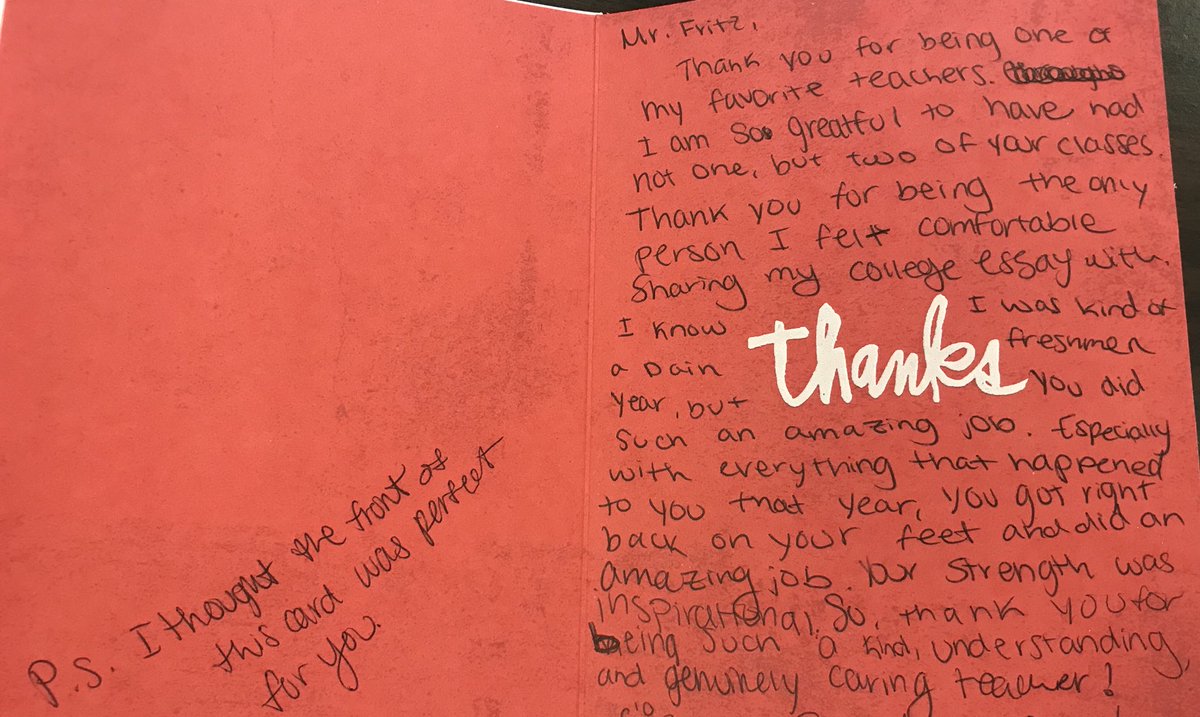 Mr. Fritz,
Thank you for being one of
my favorite teachers.
I am so greatful to have had
not one, but two of your classes.
Thank you for being the only
person I felt comfortable
Sharing my college essay with.
I know thanks I was kind of
a pain freshmen
year, but you did
such an amazing job. Especially
with everything that happened
to you that year, you got right
back on your feet and did an
amazing job. Your strength was
inspirational. So, thank you for
being such a kind, understanding,
and genuinely caring teacher!
P.S. I thought the front of
this card was perfect
for you.